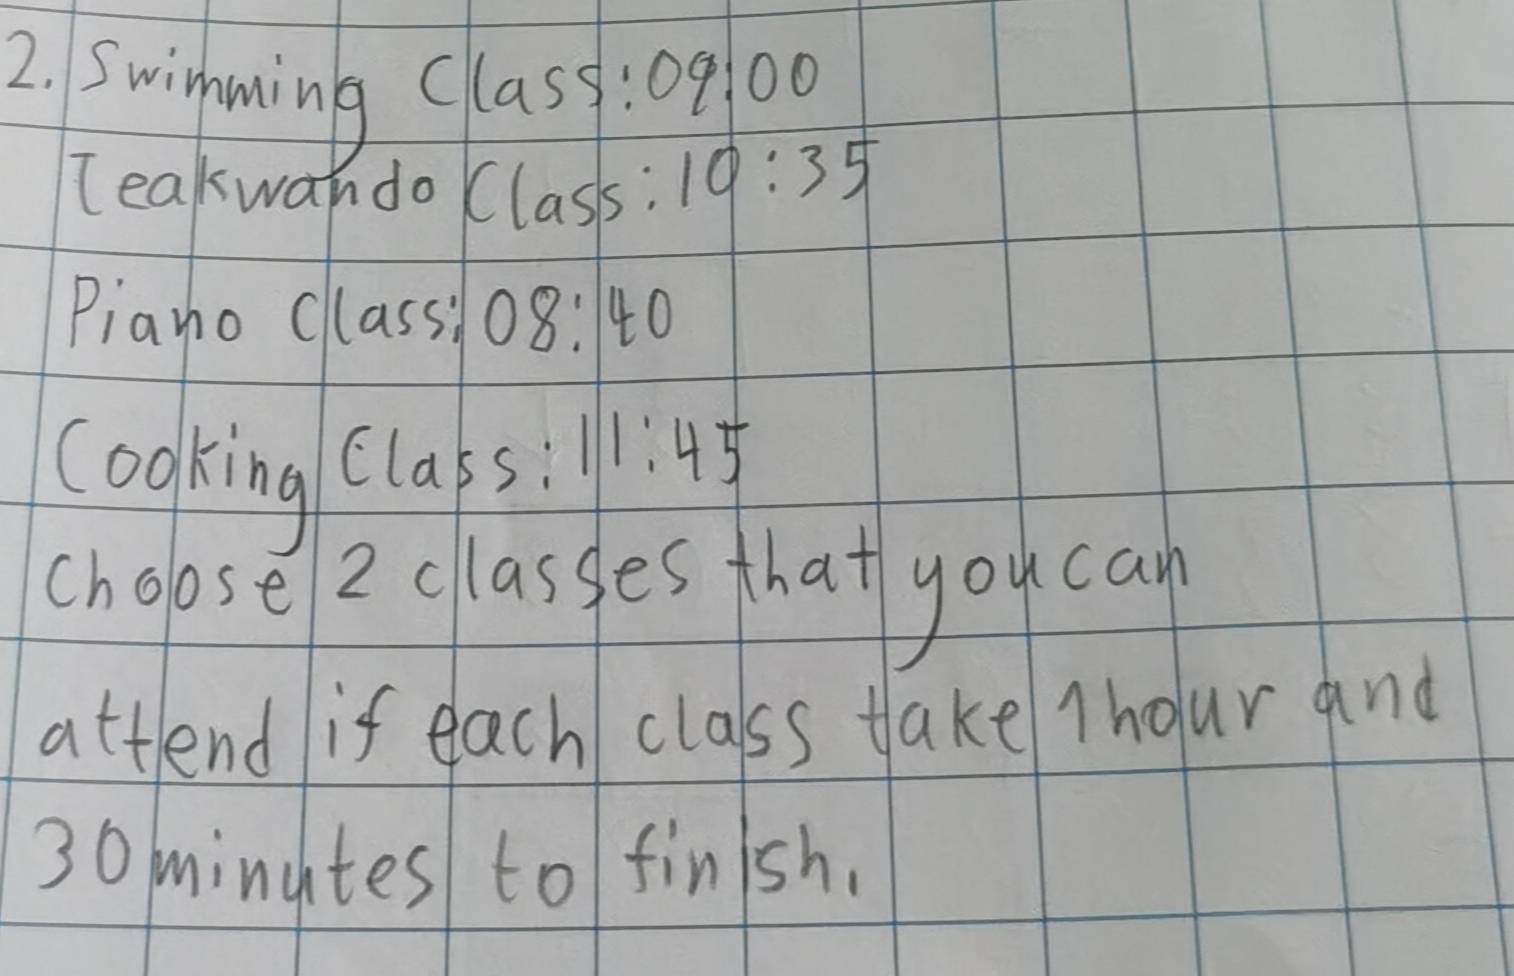 2. Swimming Class:09:00
Teakwando Class:10:35
Piano Class: 08:40
Cooking Class:11:45
Choose 2 classes that you can
attend if each class take 1 hour and
30 minutes to finish.